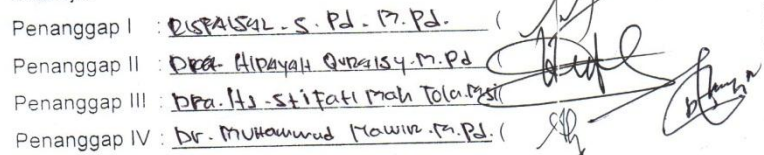 Penanggap I : RISFAISAL. S. Pd. M. Pd. (
Penanggap II : Dra. HIDAYAH QURAISY. M. Pd (
Penanggap III : Dra. Hj. St. FATIMAH TOLA. M.Si (
Penanggap IV : Dr. MUHAMMAD NAWIR. M. Pd. (